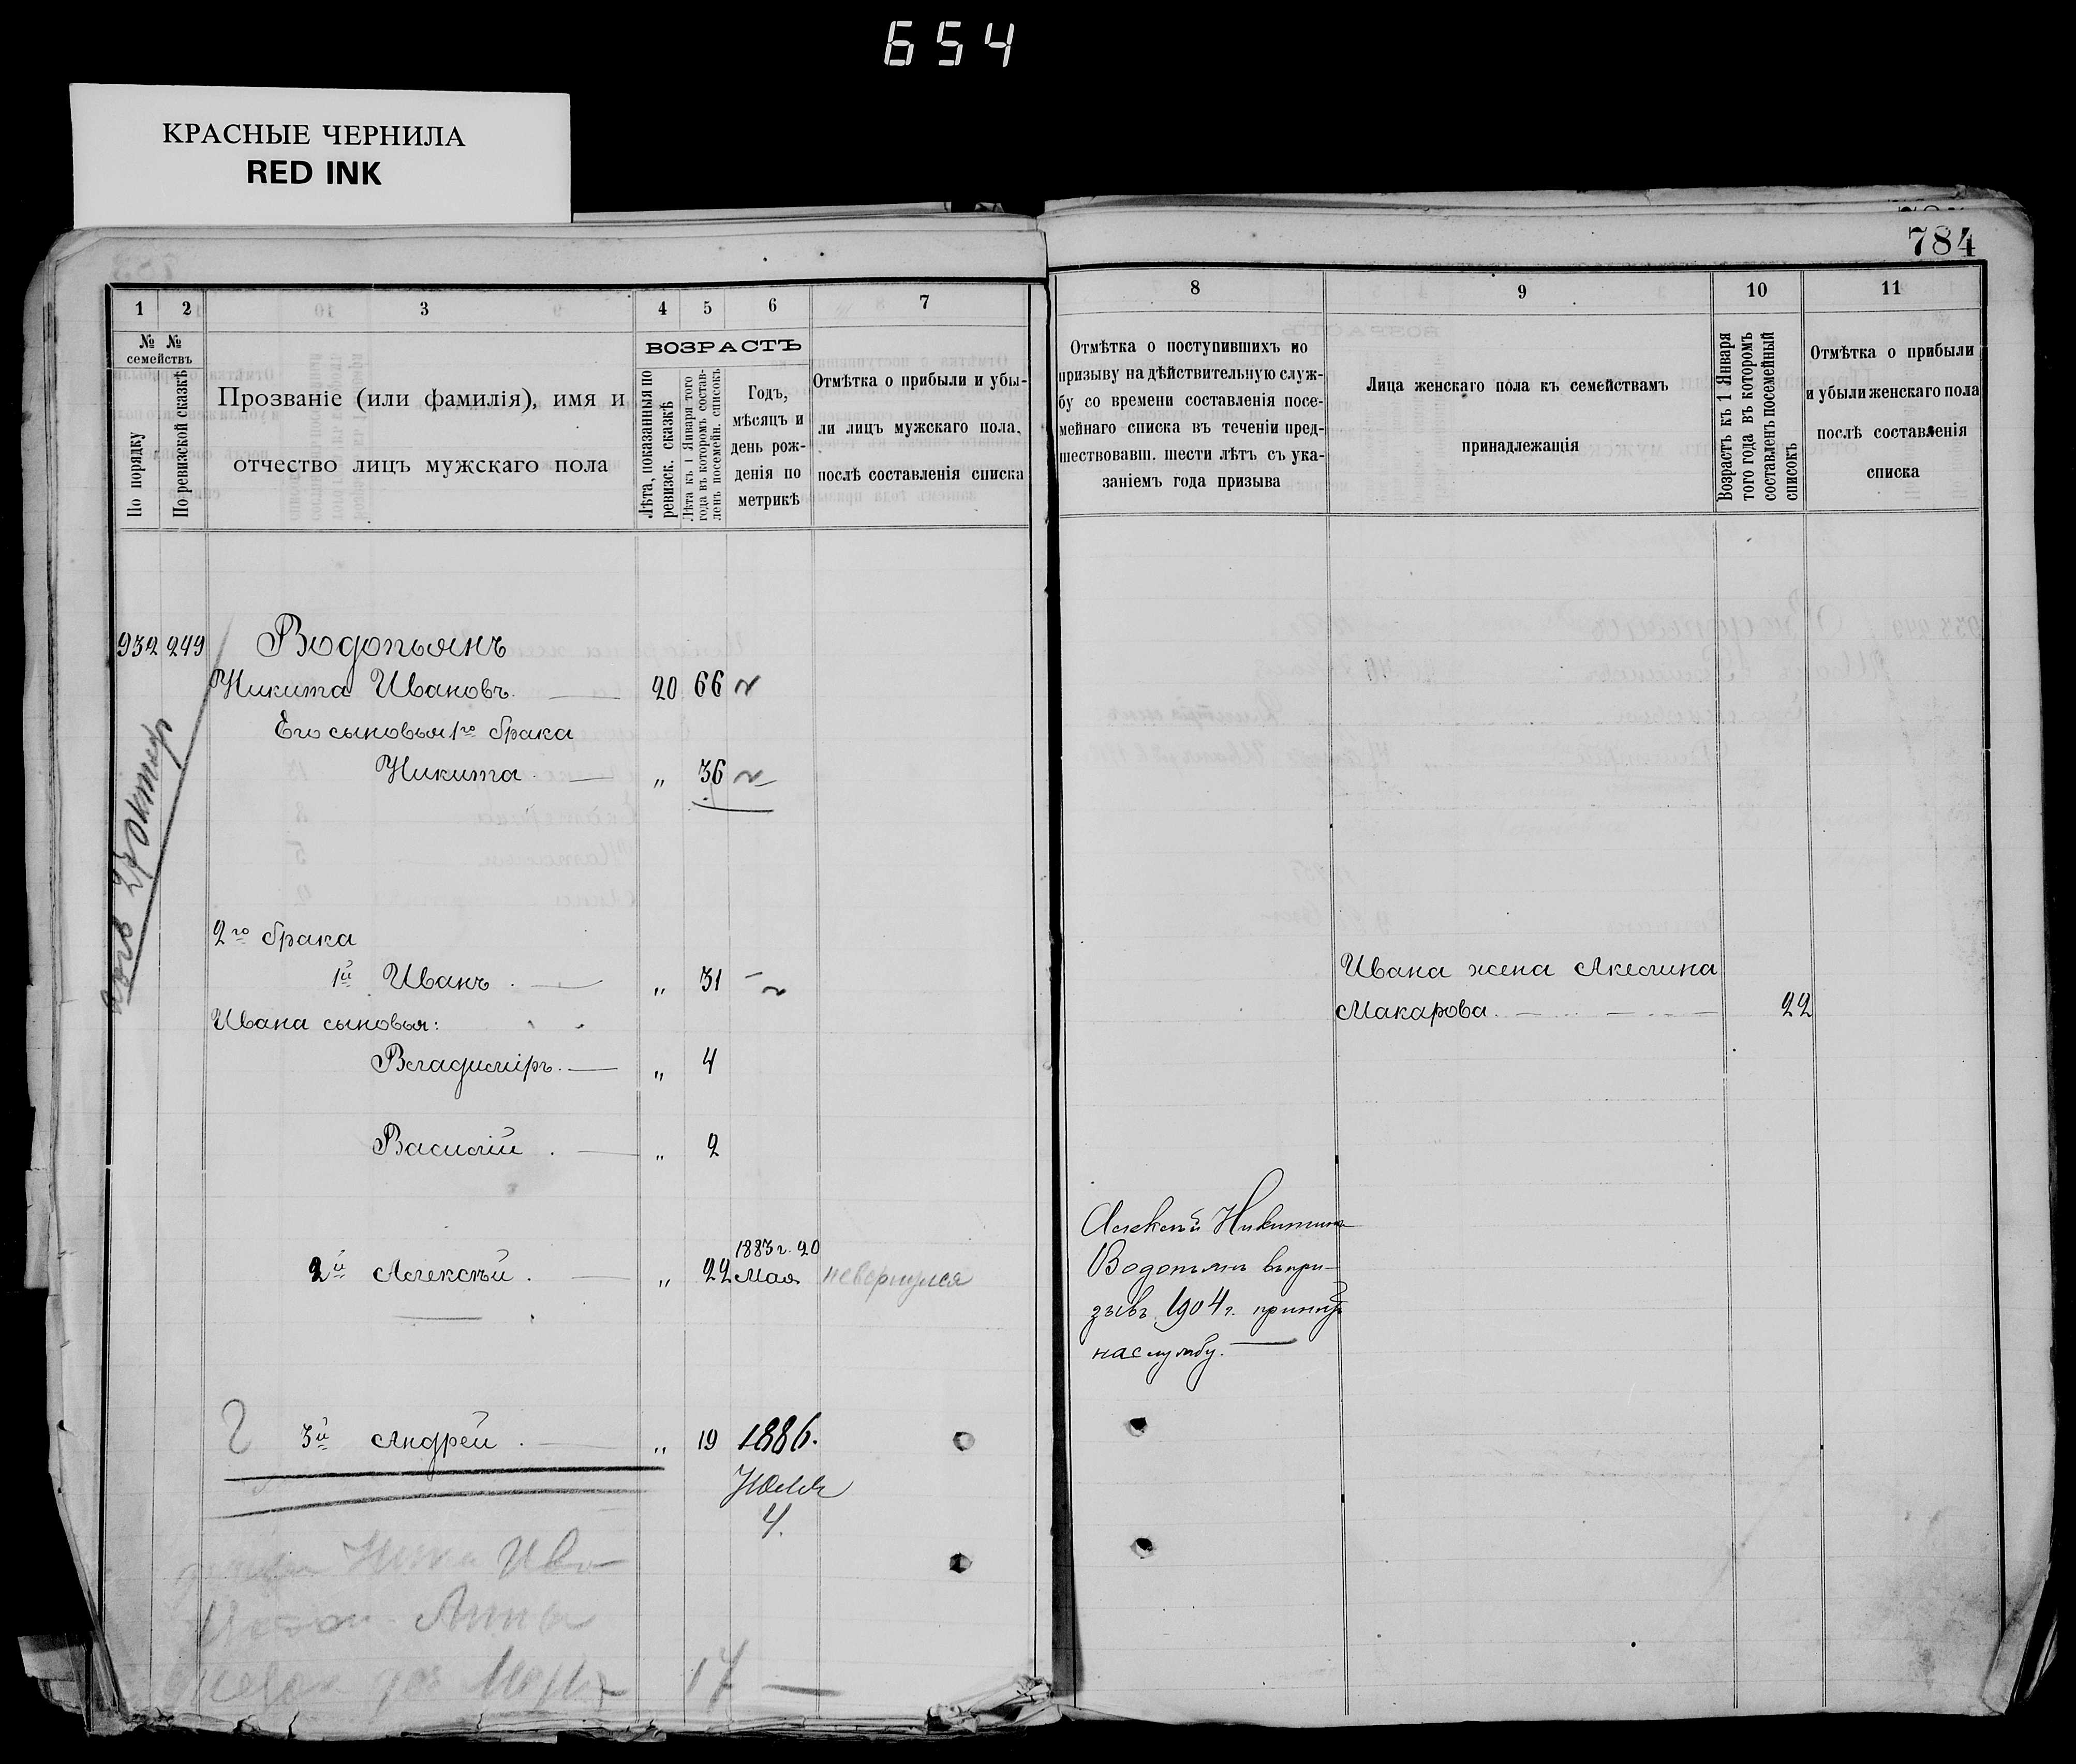 654
КРАСНЫЕ ЧЕРНИЛА
RED INK
784
1 2 3 4 5 6 7
№ № семействъ
По порядку
По ревизской сказкѣ
Прозваніе (или фамилія), имя и
отчество лицъ мужскаго пола
ВОЗРАСТЪ
Лѣта, показанныя по
ревизск. сказкѣ
Лѣта къ 1 Января того
года въ которомъ состав-
ленъ посемейн. списокъ
Годъ,
мѣсяцъ и
день рож-
денія по
метрикѣ
Отмѣтка о прибыли и убы-
ли лицъ мужскаго пола,
послѣ составленія списка
8 9 10 11
Отмѣтка о поступившихъ по
призыву на дѣйствительную служ-
бу со времени составленія посе-
мейнаго списка въ теченіи пред-
шествовавш. шести лѣтъ съ ука-
заніемъ года призыва
Лица женскаго пола къ семействамъ
принадлежащія
Возрастъ къ 1 Января
того года въ которомъ
составленъ посемейный
списокъ
Отмѣтка о прибыли
и убыли женскаго пола
послѣ составленія
списка
932 249 Водопьянъ
Никита Ивановъ. 20 66
Его сыновья 1го брака
Никита „ 36
27 Октяб
2го брака
1й Иванъ „ 31
Ивана сыновья:
Владиміръ „ 4
Василій „ 2
1883 г. 20
2й Алексѣй „ 22 Мая невернулся
3й Андрей „ 19 1886.
Юля
4.
Ива
Анна
17
Ивана жена Акелина
Макарова 22
Алексѣй Никитинъ
Водопьянъ въ при-
зывъ 1904 г. принятъ
на службу.